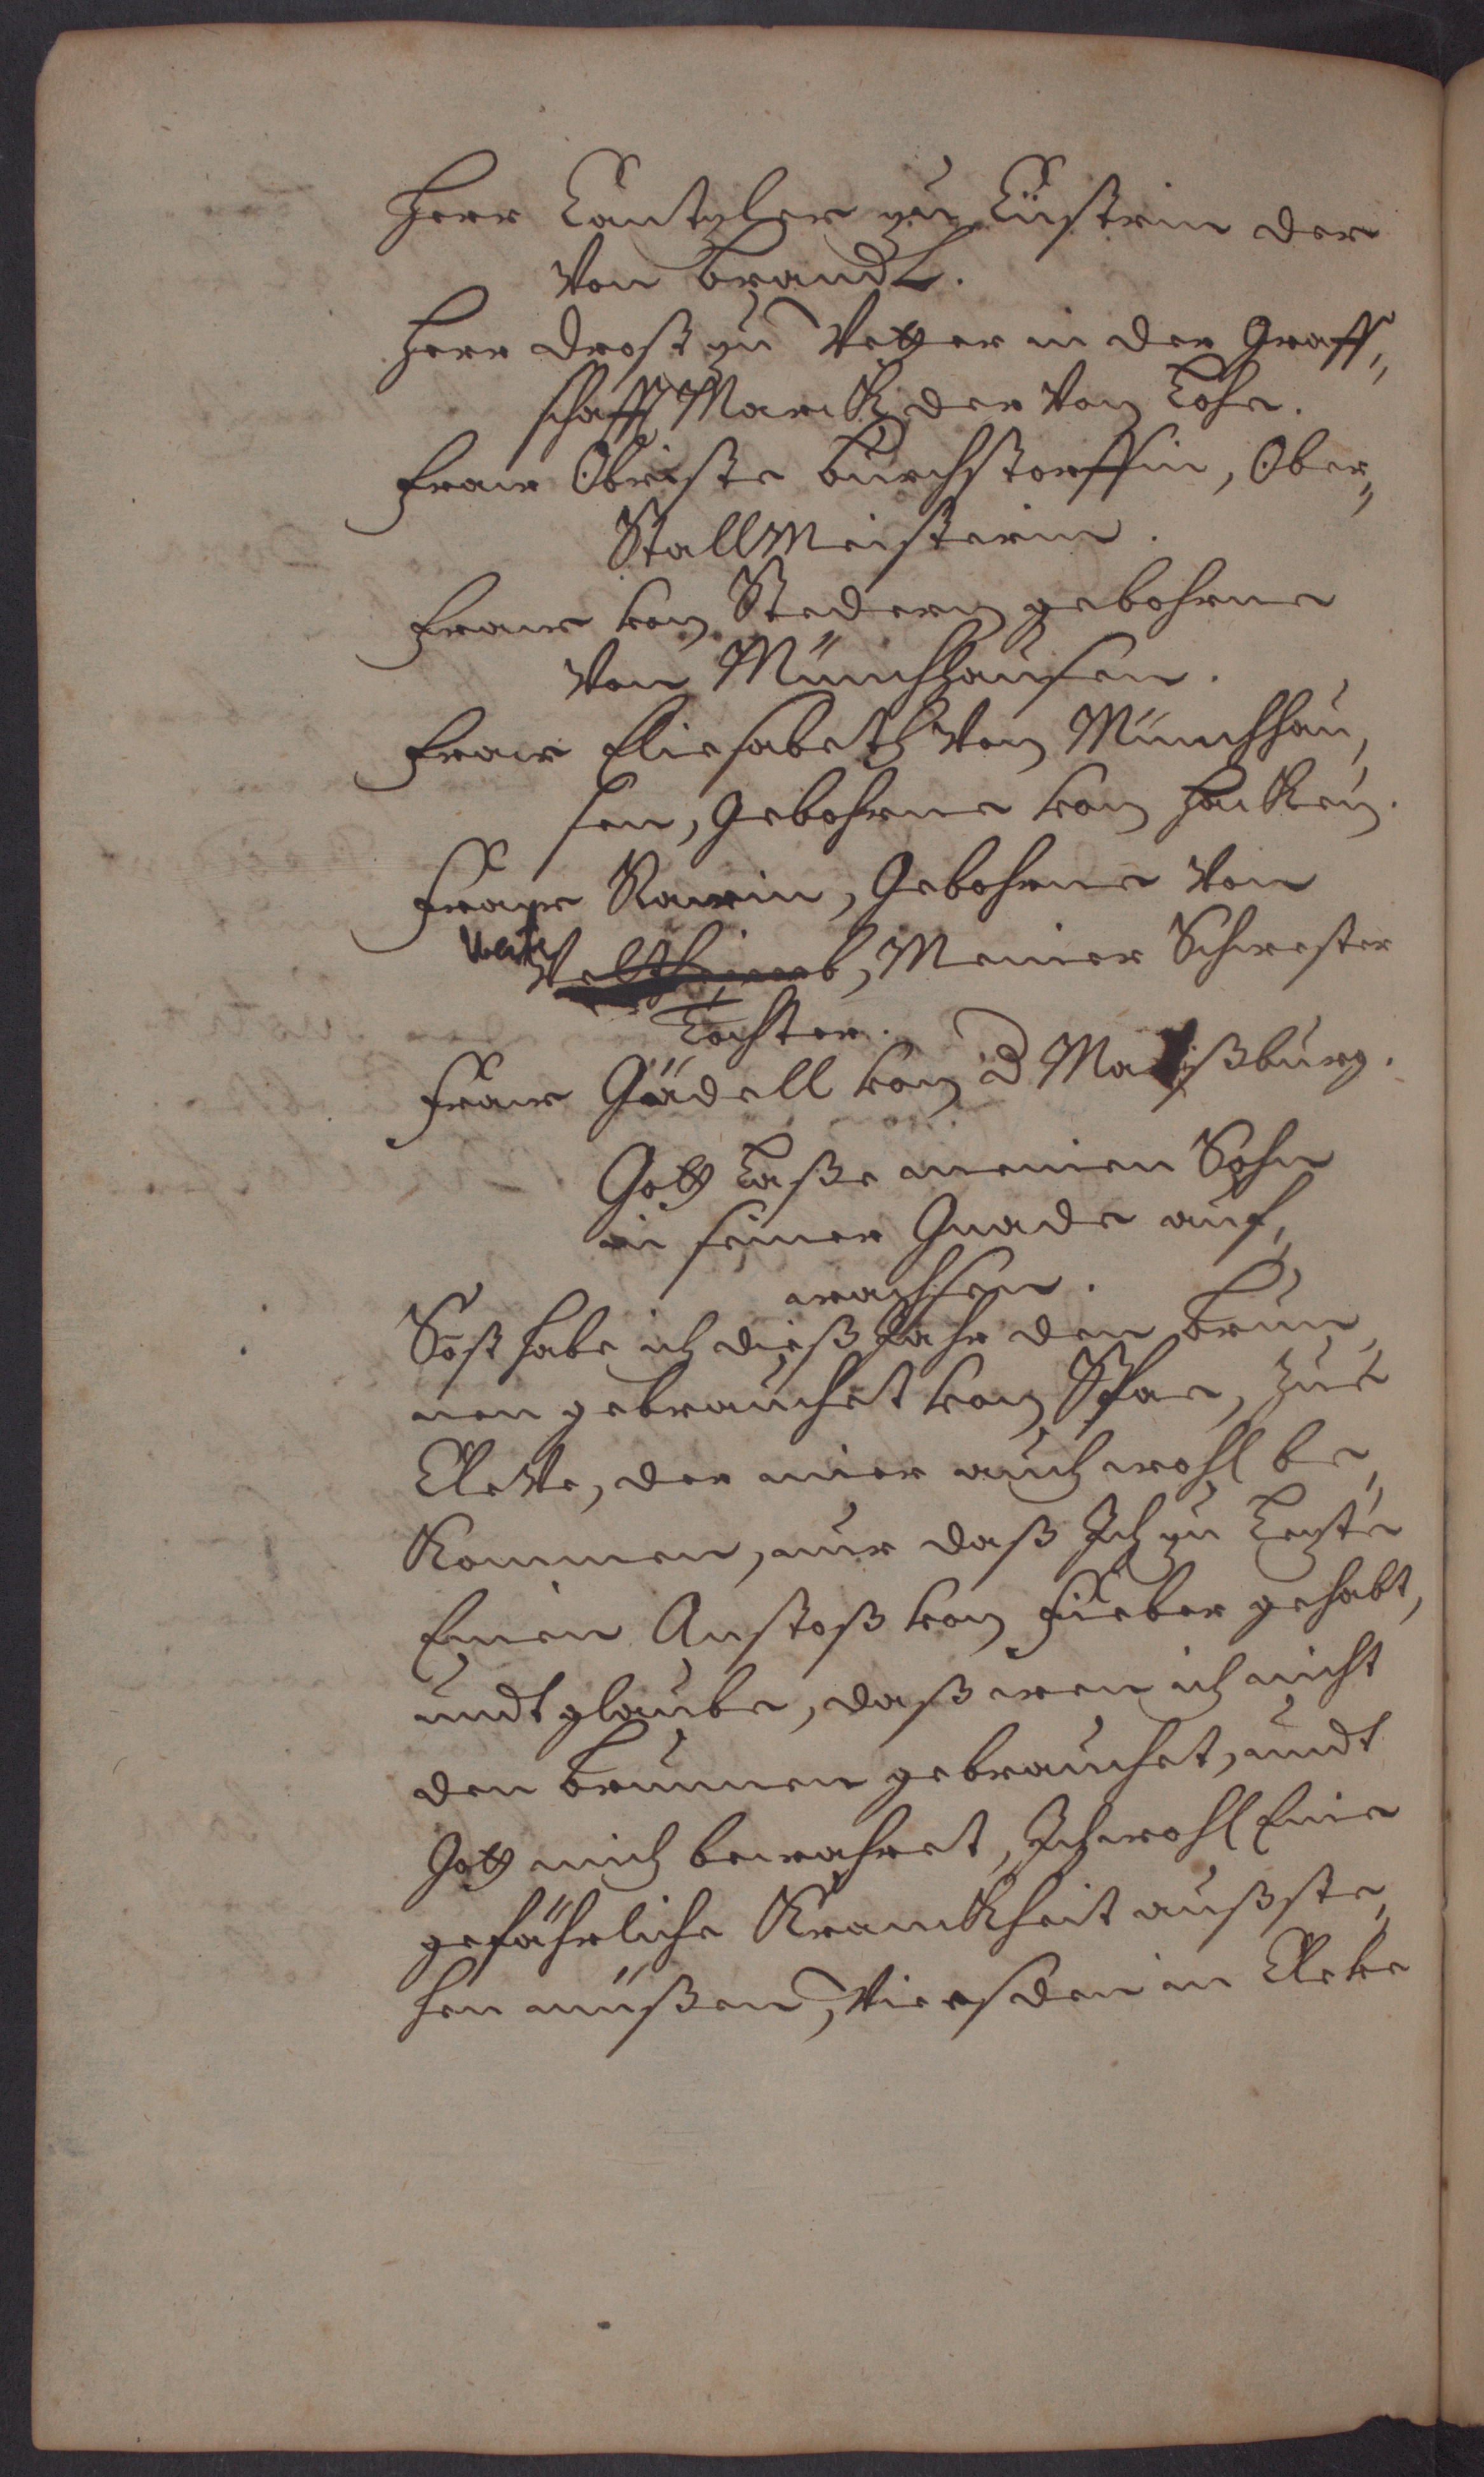 Herr Cantzler zu Cüstrin der
Von Brandt.
Herr Drost zu Vetter in der Graff„
schafft Marck der Von Lohe.
Fraw Obriste Burchstorffin, Ober„
StallMeisterin.
Fraw von Stedern gebohrne
Von Münchhausen.
Fraw Eliesabeth Von Münchhau„
sen, Gebohrne von Hacken.
Fraw Rawin, Gebohrne Von
Veltheimb, Meiner Schwester
Tochter.
Fraw Gädell von
Gott Laße meinen Sohn
in seiner Gnade auf„
wachsen.
Sost habe ich dieß Jahr den Brun„
nen gebrauchet von Spae, zue
Cleve, der mier auch wohl be„
Kommen, nur daß Ich zu Letzte
Einen Anstoß von Fieber gehabt,
undt glaube, daß wen ich nicht
den Brunnen gebrauchet, undt
Gott mich bewahret, Ich wohl Eine
gefährliche Kranckheit außste„
hen müßen, in Cleve